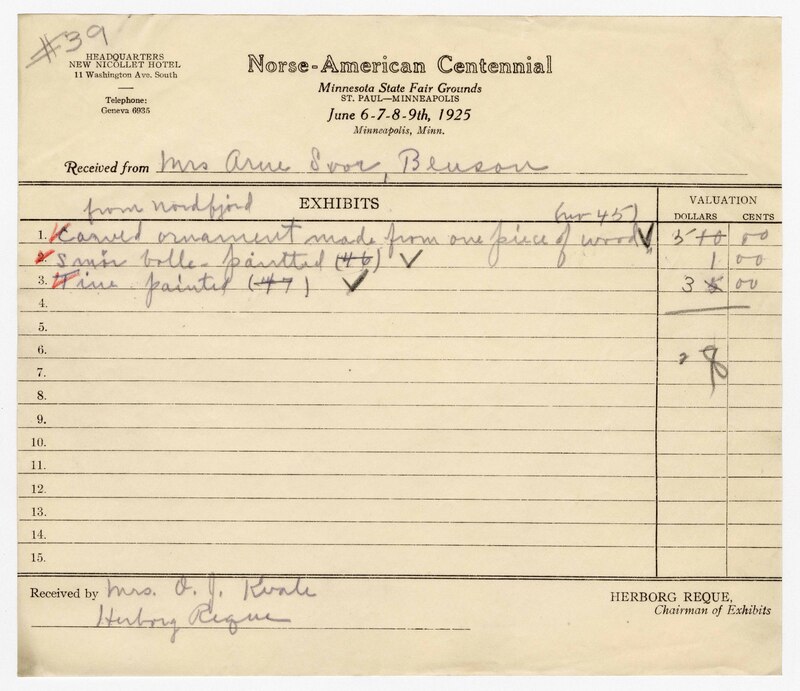 #39
HEADQUARTERS
NEW NICOLLET HOTEL
11 Washington Ave. South
Telephone:
Geneva 6935
Norse-American Centennial
Minnesota State Fair Grounds
ST. PAUL—MINNEAPOLIS
June 6-7-8-9th, 1925
Minneapolis, Minn.
Received from Mrs Arne Svor, Benson
from Nordfjord
EXHIBITS
(no 45)
VALUATION
DOLLARS CENTS
1. Carved ornament made from one piece of wood 5 10 00
2. Smör bolle - paintted (46) 1 00
3. Tine painted (47) 3 5 00
4.
5.
6.
8
7.
8.
9.
10.
11.
12.
13.
14.
15.
Received by Mrs. O. J. Kvale
Herborg Reque
HERBORG REQUE,
Chairman of Exhibits